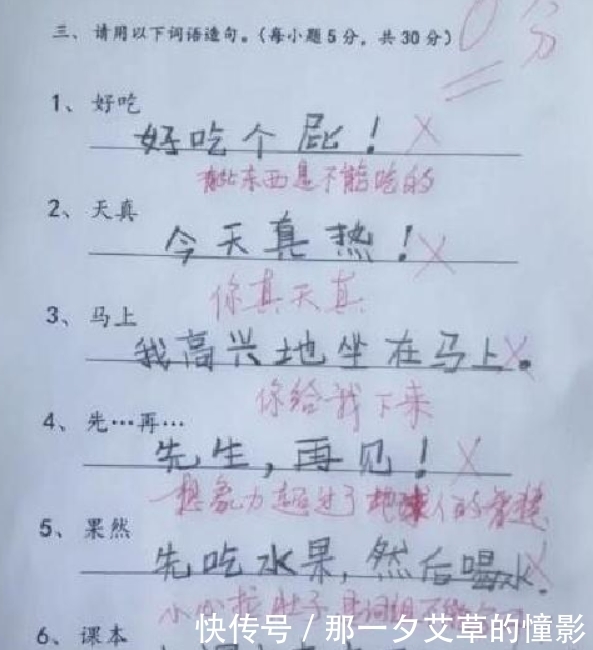 三、请用以下词语造句。(每小题5分，共30分)
0分
1、好吃
好吃个屁！
有些东西是不能吃的
2、天真
今天真热！
你真天真
3、马上
我高兴地坐在马上。
你给我下来
4、先…再…
先生，再见！
想象力超过了地球人的智慧
5、果然
先吃水果，然后喝水.
小心拉肚子
6、课本
快传号 / 那一夕艾草的憧影